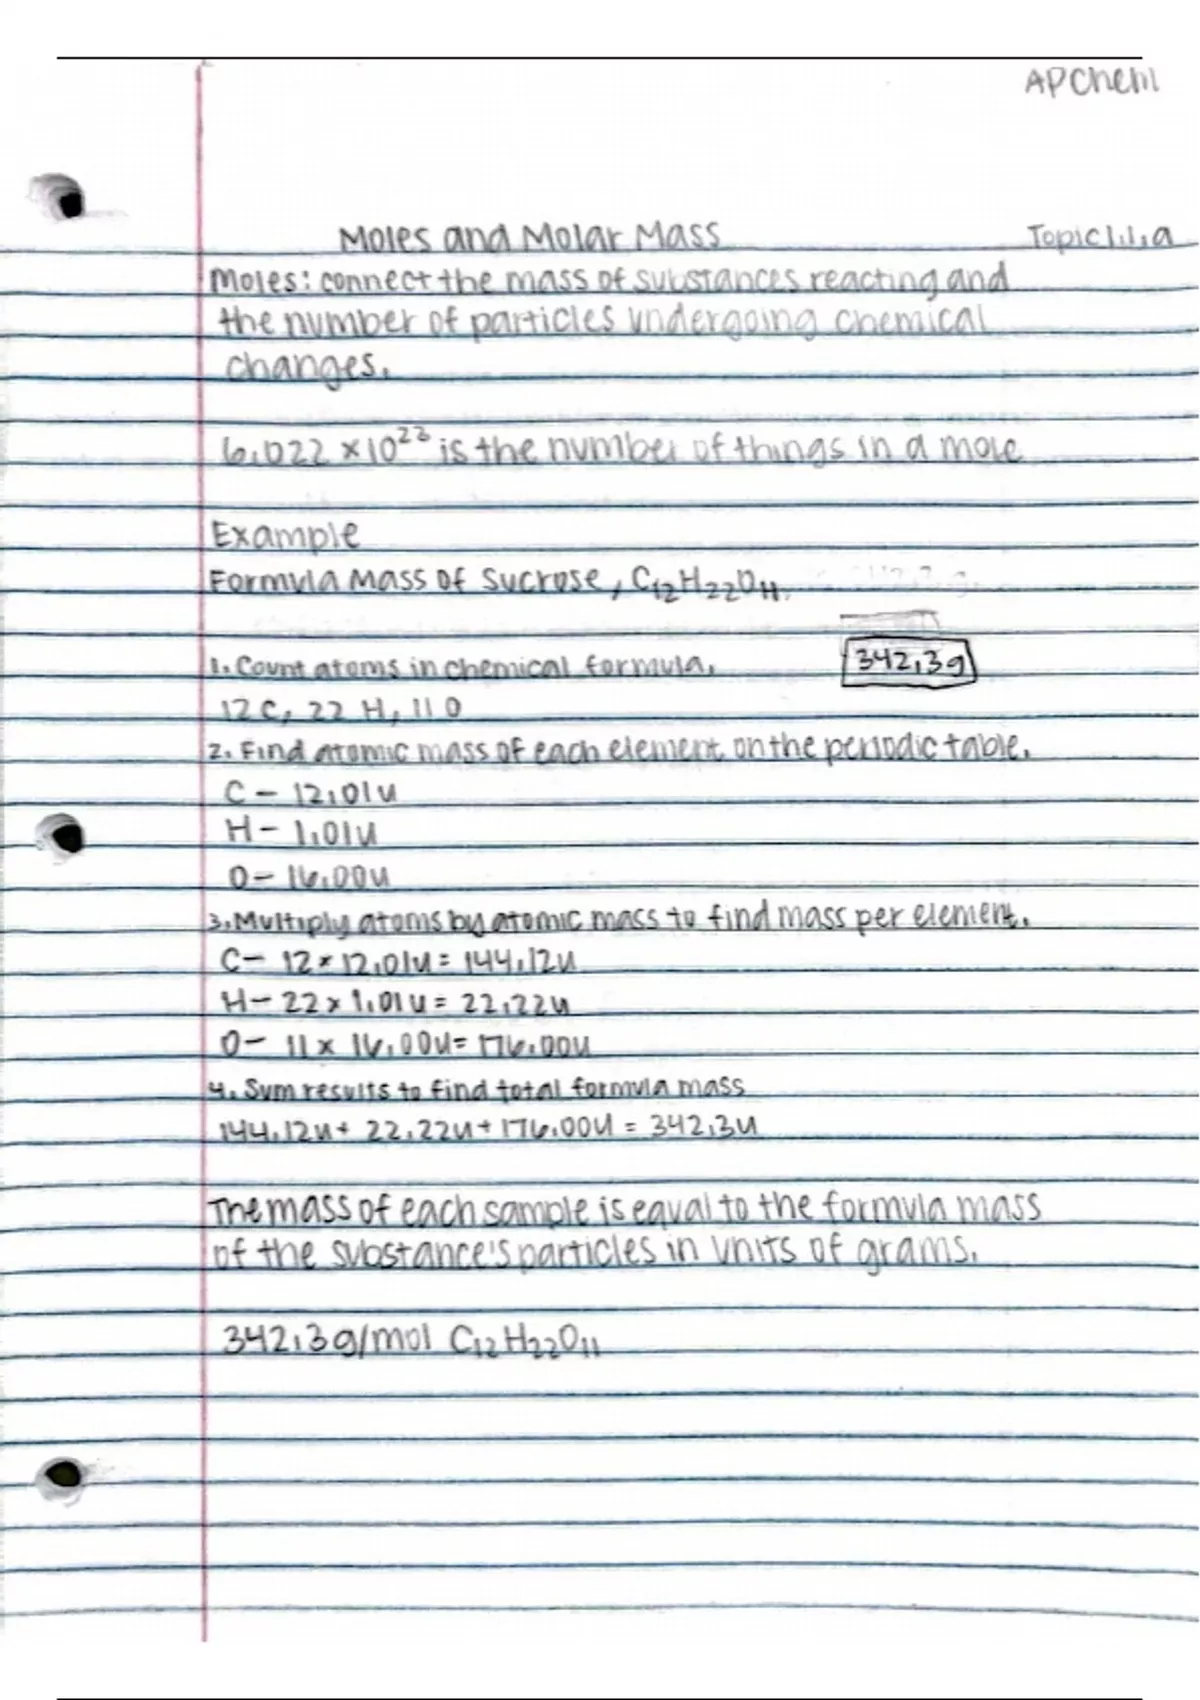 AP Chem
Moles and Molar Mass Topic 1.1.a
Moles: connect the mass of substances reacting and
the number of particles undergoing chemical
changes.
6.022 × 10²³ is the number of things in a mole
Example
Formula Mass of Sucrose, C₁₂H₂₂O₁₁.
1. Count atoms in chemical formula. 342.3g
12 C, 22 H, 11 O
2. Find atomic mass of each element on the periodic table.
C - 12.01u
H - 1.01u
O - 16.00u
3. Multiply atoms by atomic mass to find mass per element.
C - 12 × 12.01u = 144.12u
H - 22 × 1.01u = 22.22u
O - 11 × 16.00u = 176.00u
4. Sum results to find total formula mass
144.12u + 22.22u + 176.00u = 342.3u
The mass of each sample is equal to the formula mass
of the substance's particles in units of grams.
342.3g/mol C₁₂H₂₂O₁₁